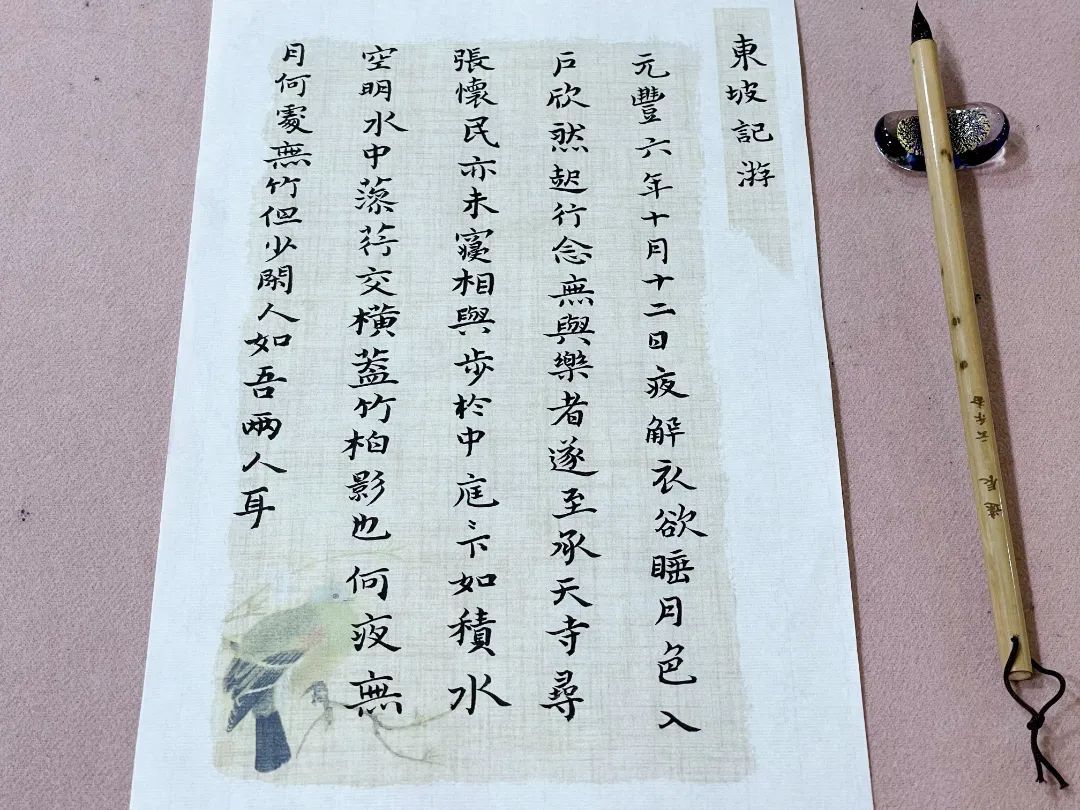 東坡記游
元豐六年十月十二日夜解衣欲睡月色入
戶欣然起行念無與樂者遂至承天寺尋
張懷民亦未寢相與步於中庭〻下如積水
空明水中藻荇交橫蓋竹柏影也何夜無
月何處無竹但少閑人如吾兩人耳